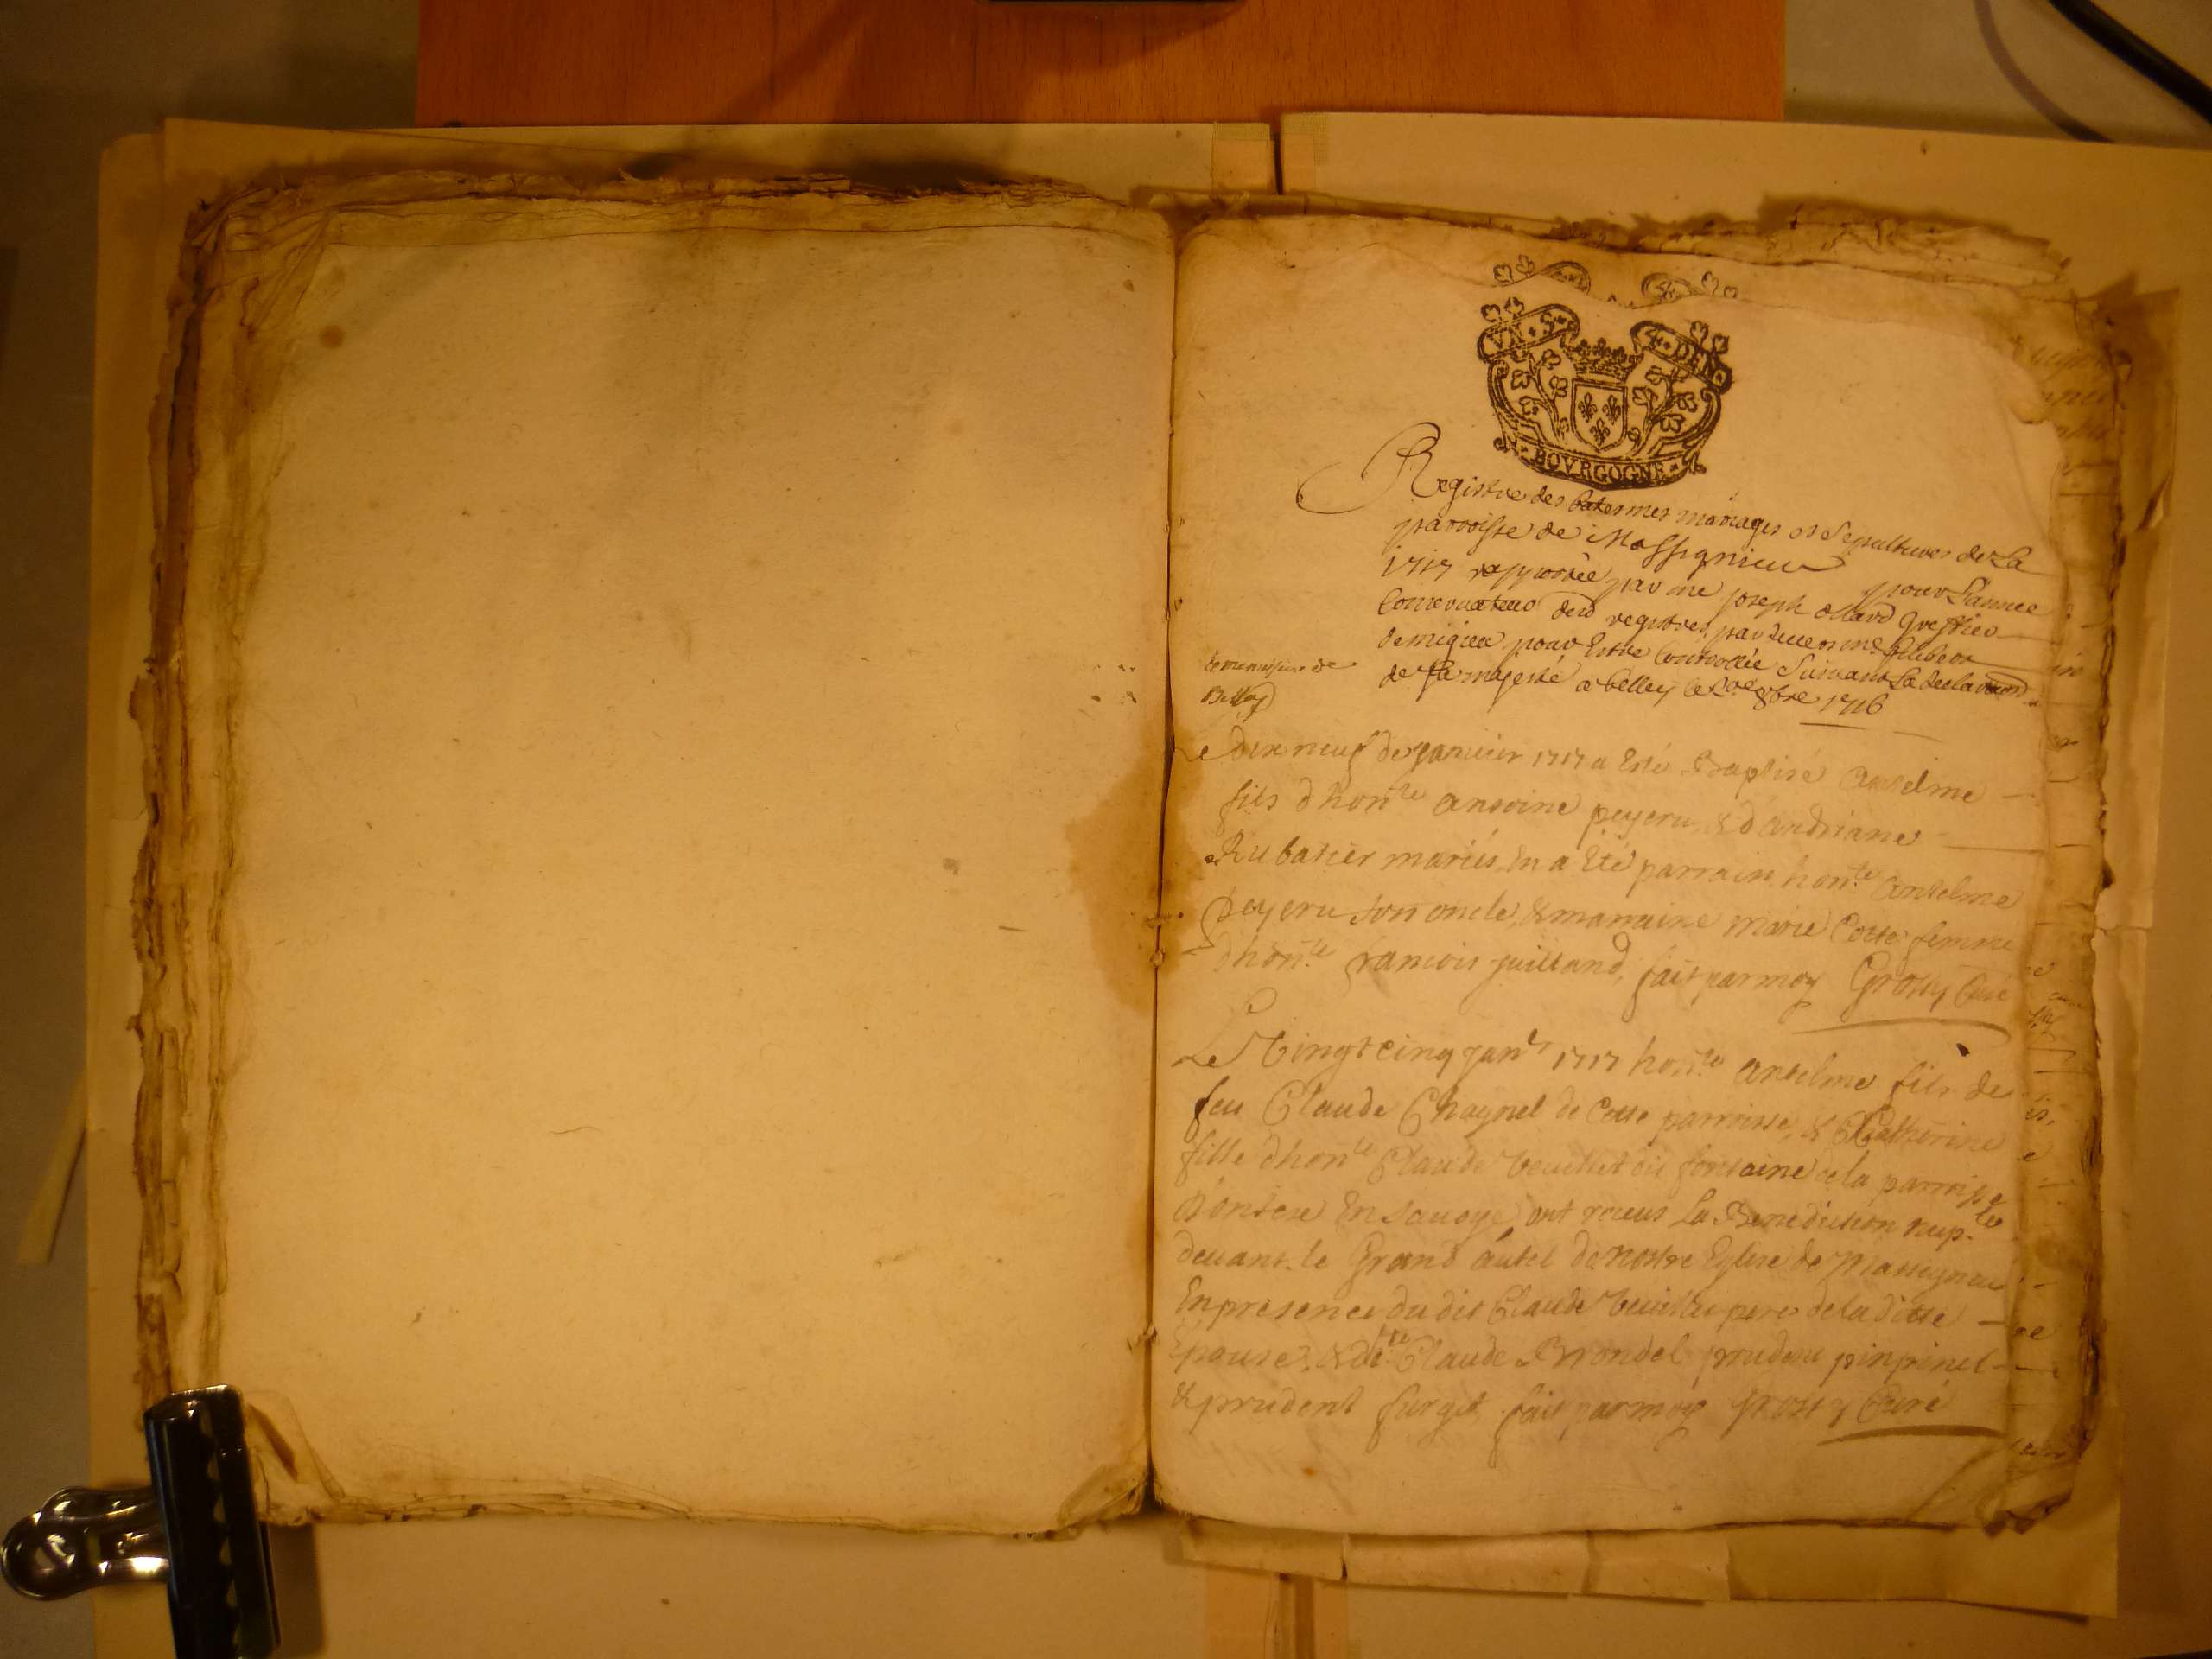 VN · S · 4 · DEN
BOVRGOGNE
Registre des batesmes mariages et Sepultures de La
parroisse de Massignieu pour Lannee
1717 par me joseph Greffier
Conservateur desd registres par
demigieu pour Estre Controllée Suivant La declaration
de sa majesté a belley le 8bre 1716
Belley
Le dix neuf de janvier 1717 a Esté Baptisé Antelme
fils dhonle antoine peyeru & dandriane
Rubatier mariés En a Eté parrain honle Antelme
peyeru son oncle, & marraine marie Cotte femme
dhonle francois juilland, fait parmoy Grossy Curé
Le Vingt cinq janr 1717 honle Antelme fils de
feu Claude Chaynel de Cette parroisse, & Catherine
fille dhonle Claude dit fontaine de la parroisse
dontex En Savoye, ont receus La Benediction nuple
devant le Grand autel de nostre Eglise de Massignieu
En presence du dit Claude pere de la ditte
Epouse, & de Claude Brondel prudent pinpinel
& prudent furget, fait parmoy Grossy Curé